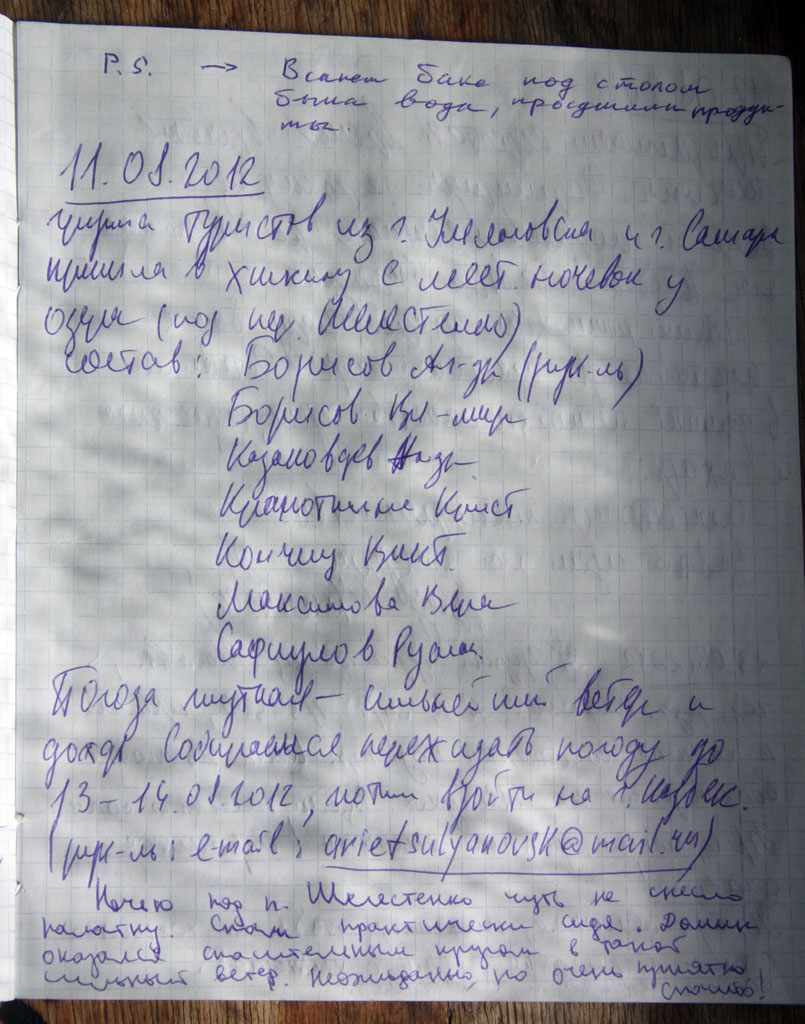 P.S. → В синем баке под столом
была вода, просушили продук-
ты.
11.08.2012
группа туристов из г. Ульяновска и г. Самара
пришла в хижину с мест. ночевок у
озера (под пер. Шелестенко)
Состав: Борисов Ал-др (рук-ль)
Борисов Вл-мир
Казаковцев
Крист
Викт.
Максимова Вера
Сафиулов
Погода жуткая — сильнейший ветер и
дождь. Собираемся переждать погоду до
13-14.08.2012, потом взойти на г. Казбек.
(рук-ль: e-mail: arietsulyanovsk@mail.ru)
Ночью под п. Шелестенко чуть не снесло
палатку. Спали практически сидя. Домик
оказался спасительным кругом в такой
сильный ветер. Неожиданно, но очень приятно
спасибо!